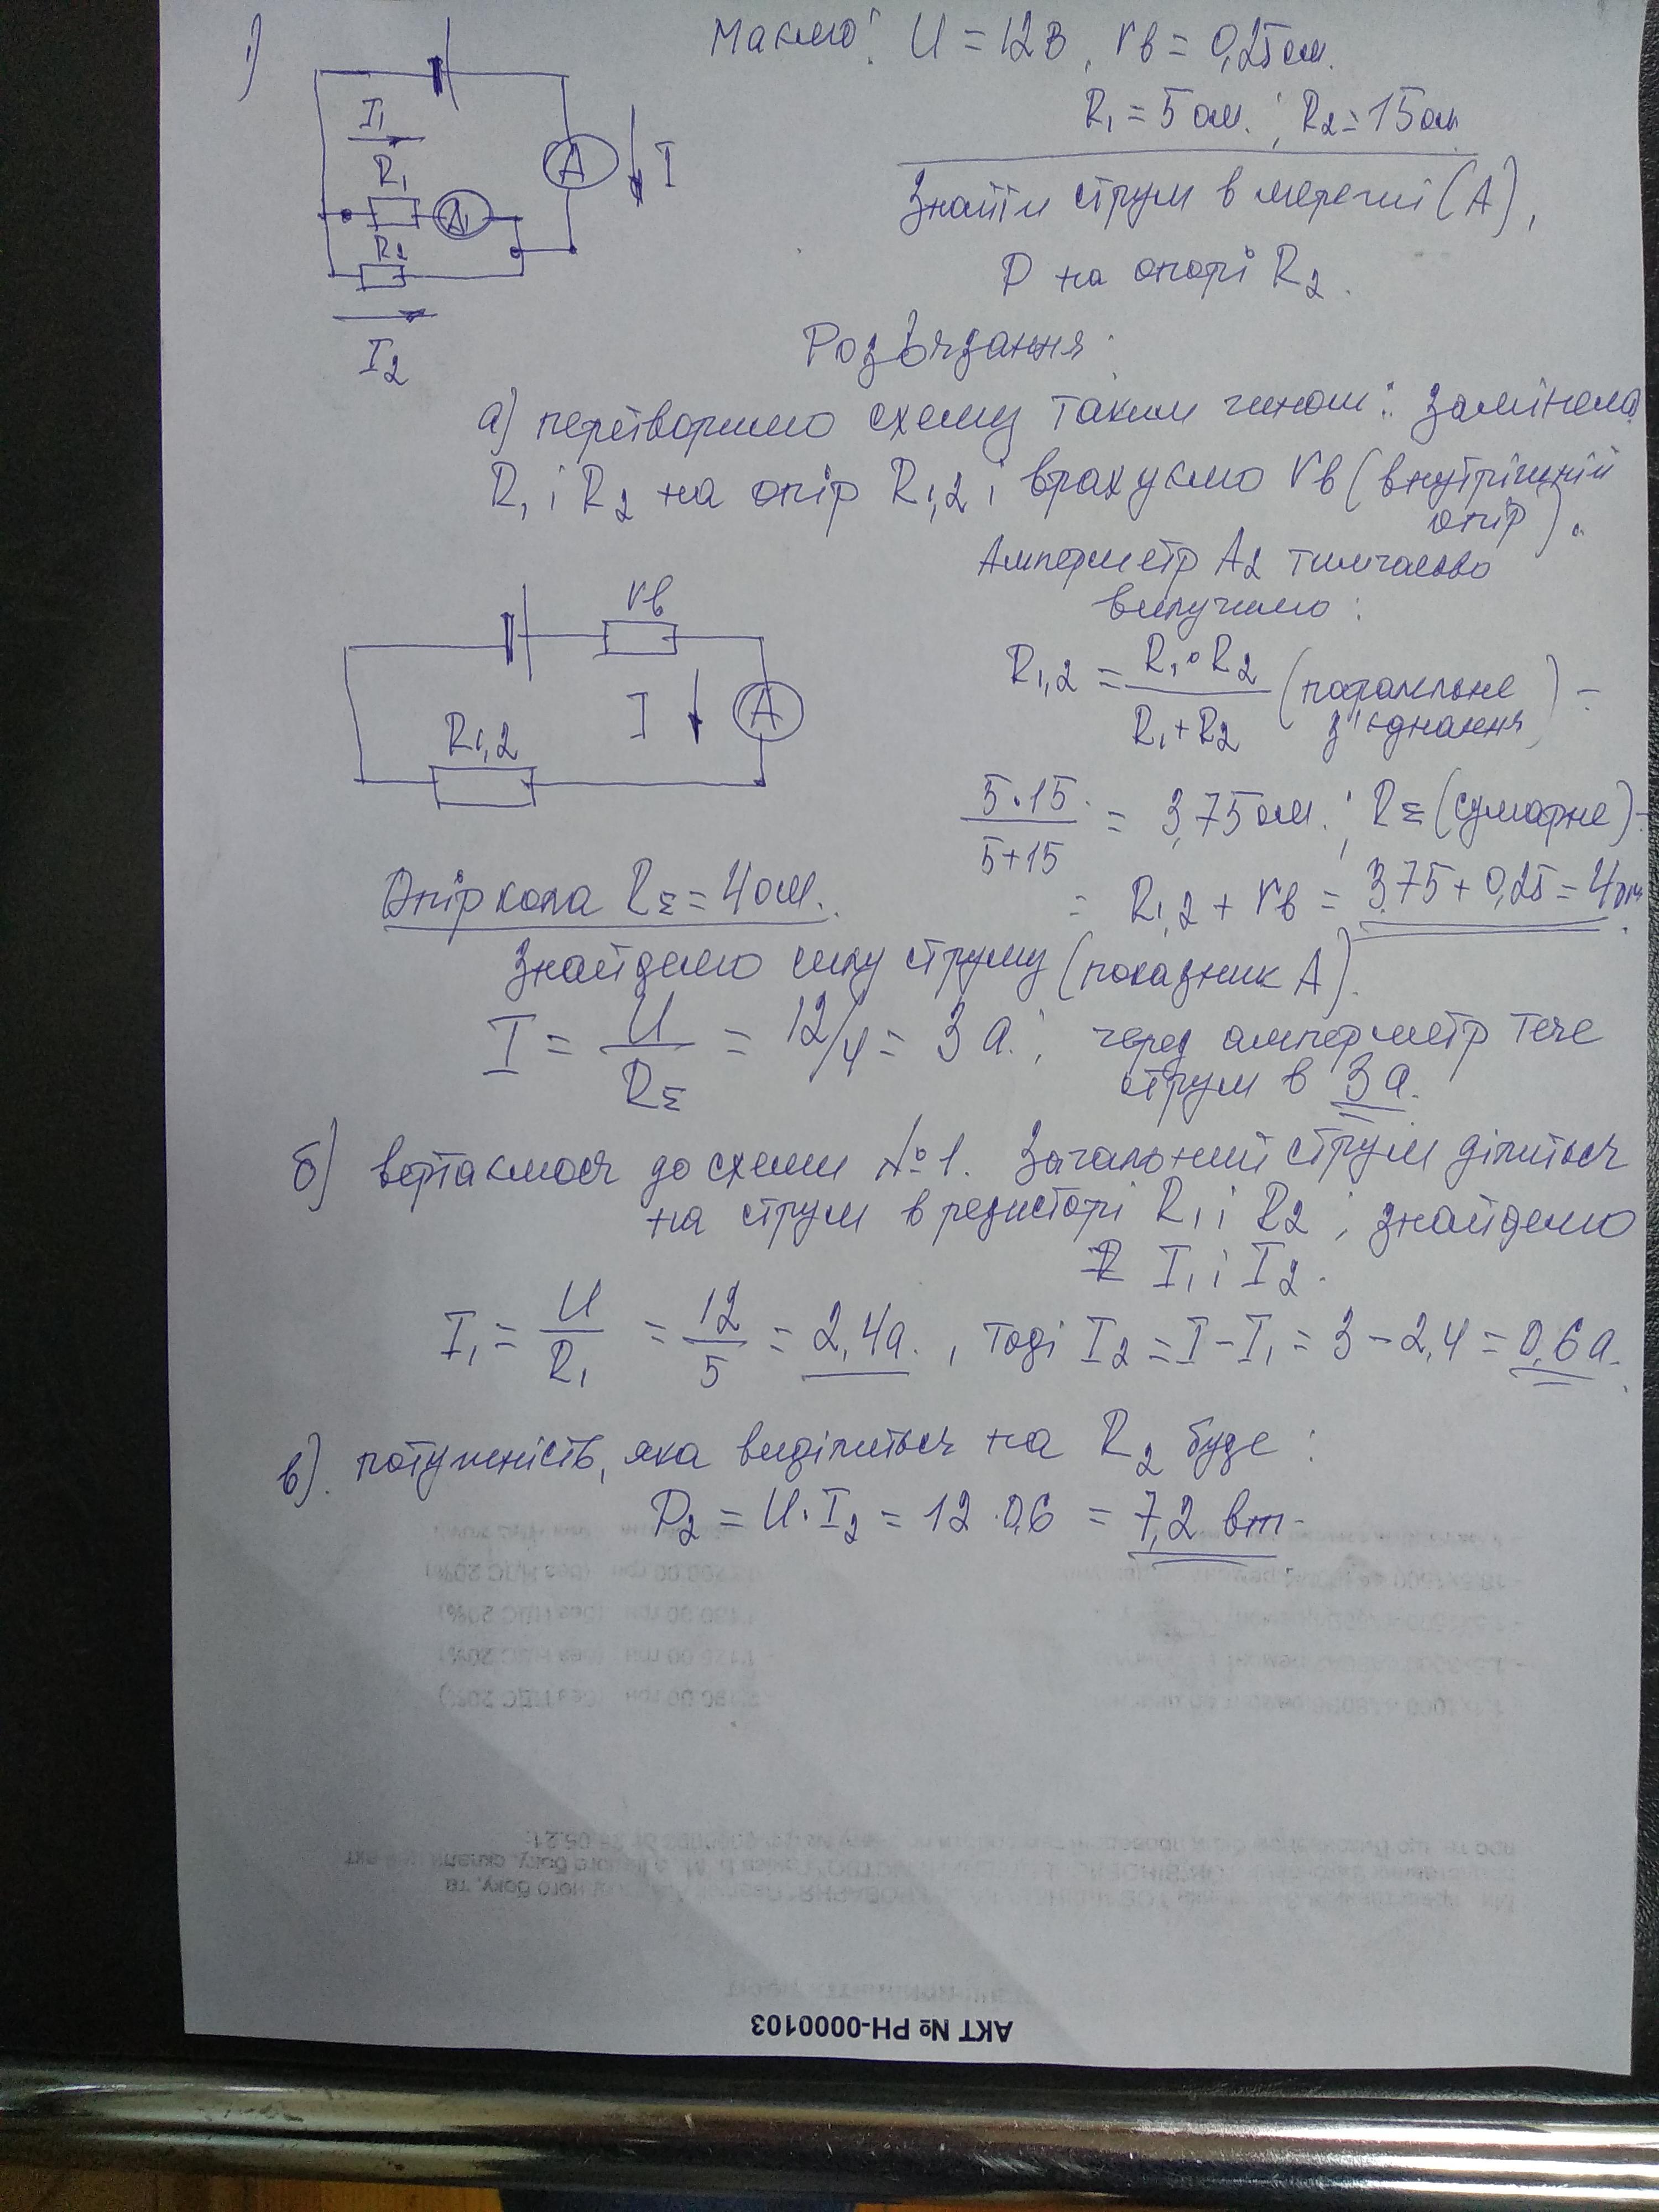 1)
Маємо: U = 12В, rв = 0,25ом.
R1 = 5 ом. ; R2 = 15ом
Знайти струм в мережі (А),
P на опорі R2.
I1
R1
A1
R2
I2
A
I
Розв'язання:
а) перетворимо схему таким чином: замінемо
R1 і R2 на опір R1,2 і врахуємо rв (внутрішній
опір).
Амперметр А2 тимчасово
вилучимо:
rв
I
A
R1,2
R1,2 = R1 · R2 / R1 + R2 (паралельне з'єднання) =
5·15 / 5+15 = 3,75 ом. ; RΣ (сумарне) =
= R1,2 + rв = 3,75 + 0,25 = 4 ом
Опір кола RΣ = 4 ом.
Знайдемо силу струму (показник А).
I = U / RΣ = 12/4 = 3 а. ; через амперметр тече
струм в 3 а.
б) вертаємося до схеми №1. Загальний струм ділиться
на струм в резисторі R1 і R2 ; знайдемо
I1 і I2.
I1 = U / R1 = 12 / 5 = 2,4а. , тоді I2 = I - I1 = 3 - 2,4 = 0,6 а.
в). потужність, яка виділиться на R2 буде:
P2 = U · I2 = 12 · 0,6 = 7,2 вт.
АКТ № РН-0000103